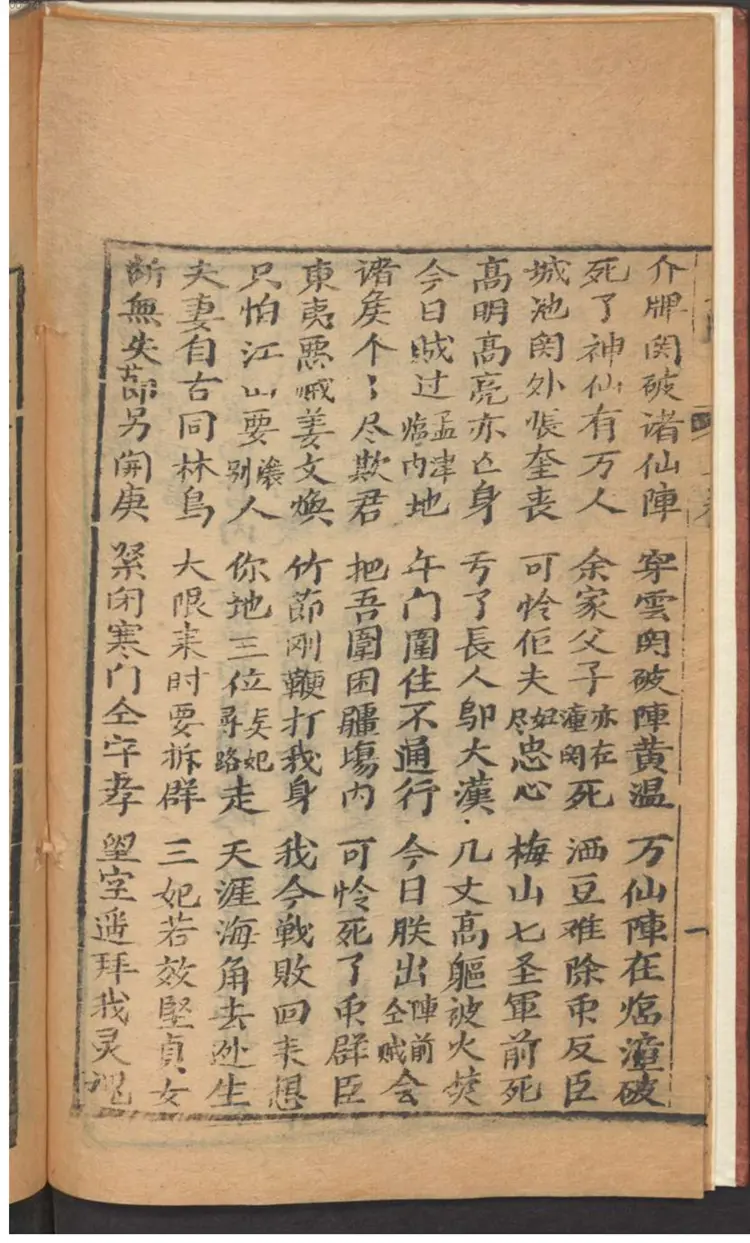 介牌関破诸仙陣　穿雲関破陣黄温　万仙陣在临潼破
死了神仙有万人　余家父子亦在潼関死　洒豆难除甫反臣
城池関外張奎丧　可怜佢夫妇尽忠心　梅山七圣軍前死
高明高亮亦亡身　亏了長人邬大漢　几丈高軀被火焚
今日贼过孟津临内地　午门圍住不通行　今日朕出陣前仝贼会
诸矦个〻尽欺君　把吾圍困疆塲内　可怜死了甫群臣
東夷悪贼姜文焕　竹節刚鞭打我身　我今戦敗回来想
只怕江山要讓别人　你地三位贵妃尋路走　天涯海角去处生
夫妻自古同林鳥　大限来时要拆群　三妃若效堅貞女
断無失節另開庚　紧闭寒门仝守孝　望空遥拜我灵魂
一